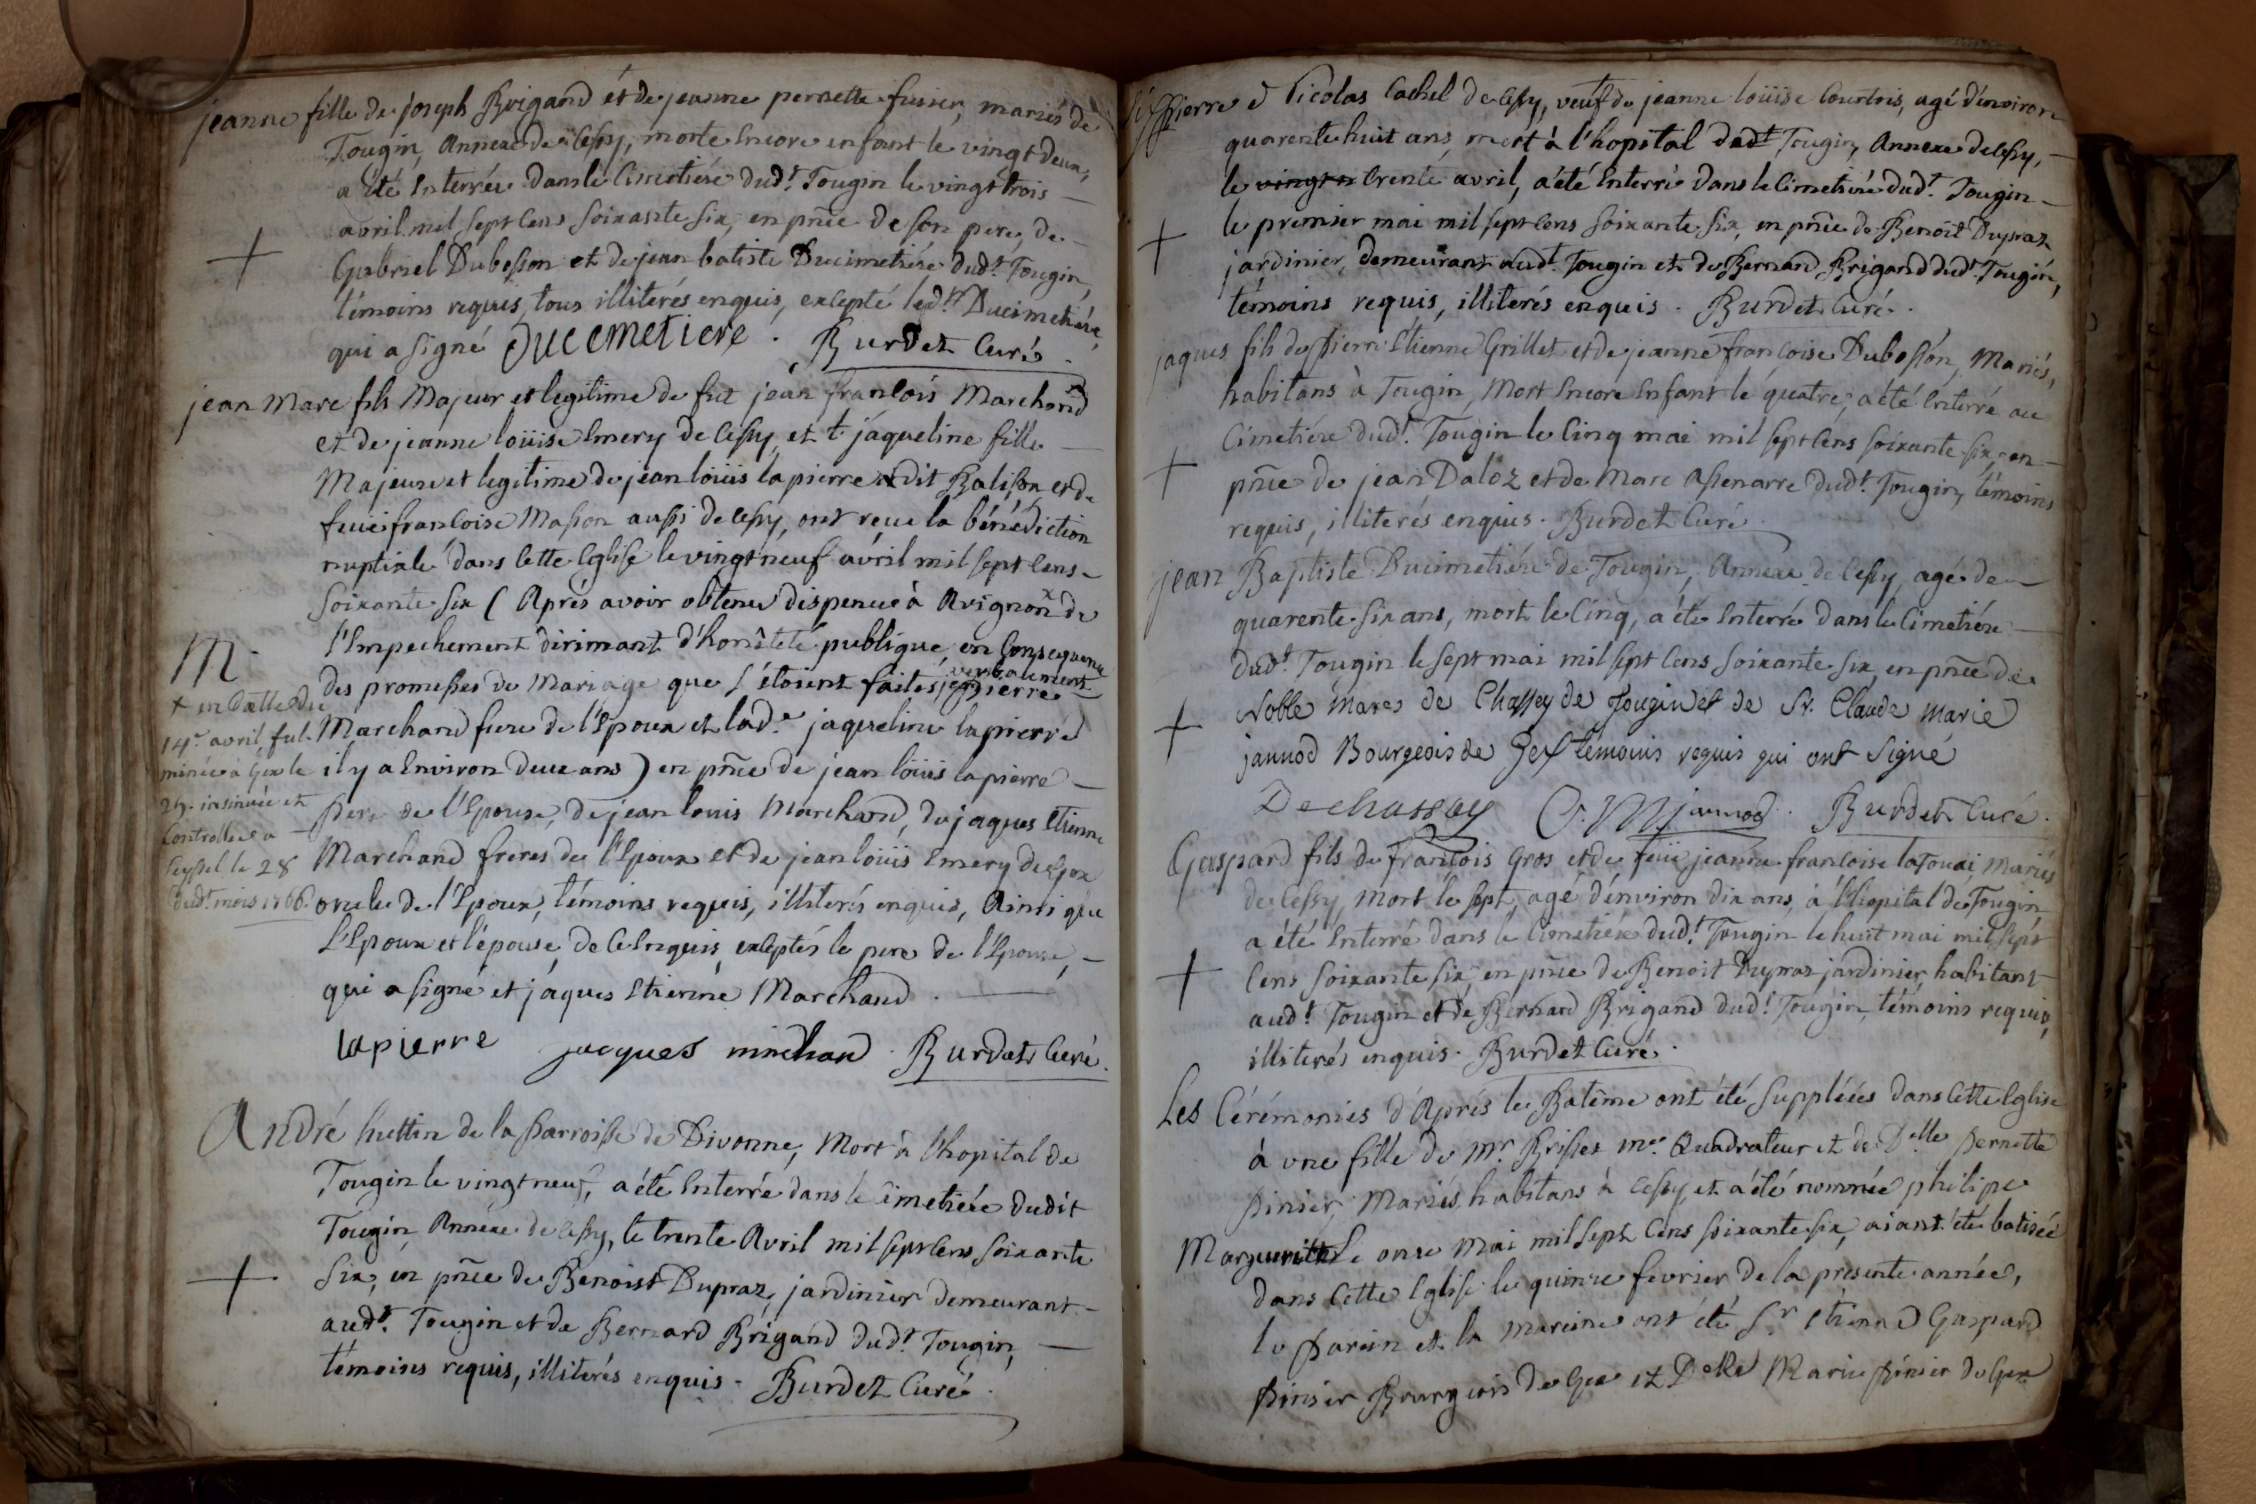 jeanne fille de joseph Brigand et de jeanne pernette fusier, mariés de
Tougin, Annexe de Cessy, morte encore enfant le vingt deux,
a été Enterrée dans le Cimetiére dud.t Tougin le vingt trois
avril mil sept cens soixante six, en pñce de son pere, de
Gabriel Dubosson et de jean batiste Ducimetiére dud.t Tougin,
témoins requis, tous illiterés enquis, excepté led.t Ducimetiére,
qui a signé Ducemetiere. Burdet Curé.
jean Marc fils Majeur et legitime de fût jean francois Marchand
et de jeanne loüise Emery de Cessy, et jaqueline fille
Majeure et legitime de jean loüis lapierre dit Balison et de
feüe francoise Masson aussi de Cessy, ont reçue la bénédiction
nuptiale dans Cette Eglise le vingt neuf avril mil sept Cens
soixante six (Aprés avoir obtenu dispence à Avignon x de
l'Empechement dirimant d'honêteté publique, en Consequence
des promesses de Mariage que s'étoient faites verbalement
Pierre
Marchand frere de l'Epoux et lad.e jaqueline lapierre
il y a Environ deux ans) en pñce de jean loüis lapierre
Pere de l'Epouse, de jean louis Marchand, de jaques Etienne
Marchand freres de l'Epoux et de jean loüis Emery de Gex
oncle de l'Epoux, témoins requis, illiterés enquis, Ainsi que
L'Epoux et l'épouse, de Ce Enquis, exceptés le pere de l'Epouse,
qui a signé et jaques Etienne Marchand.
M.
x en datte du
14.e avril, ful-
minée à Gex le
29. insinuée et
Controllée a
Seyssel le 28
dud.t mois 1766.
lapierre jacques Burdet Curé.
André huttin de la Parroisse de Divonne, Mort à l'hopital de
Tougin le vingt neuf, a été Enterré dans le Cimetiére dudit
Tougin, Annexe de Cessy, le trente Avril mil sept Cens soixante
six, en pñce de Benoist Dupraz, jardinier demeurant
aud.t Tougin et de Bernard Brigand dud.t Tougin,
témoins requis, illiterés enquis. Burdet Curé.
Pierre Nicolas Cachel de Cessy, veuf de jeanne loüise Courtois, agé d'environ
quarente huit ans, mort à l'hopital dud.t Tougin, Annexe de Cessy,
le trente avril, a été Enterré dans le Cimetiére dud.t Tougin
le premier mai mil sept cens soixante six, en pñce de Benoit Dupraz
jardinier, demeurant aud.t Tougin et de Bernard Brigand dud.t Tougin,
témoins requis, illiterés enquis. Burdet Curé.
jaques fils de Pierre Etienne Grillet et de jeanne francoise Dubosson, Mariés,
habitans à Tougin, Mort Encore Enfant le quatre, a été Enterré au
Cimetiére dud.t Tougin le Cinq mai mil sept Cens soixante six, en
pñce de jean Daloz et de Marc Assenarre dud.t Tougin, témoins
requis, illiterés enquis. Burdet Curé
jean Baptiste Ducimetiére de Tougin, Annexe de Cessy, agé de
quarente six ans, mort le Cinq, a été Enterré dans le Cimetiére
dud.t Tougin le sept mai mil sept Cens soixante six, en pñce de
Noble mares de Chassey de Tougin et de Sr. Claude Marie
jannod Bourgeois de Gex temouis requis qui ont signé
Dechassey C. M jannod. Burdet Curé.
Gaspard fils de francois Gros et de feüe jeanne francoise Mariés
de Cessy, Mort le sept, agé d'environ dix ans, à l'hopital de Tougin,
a été Enterré dans le Cimetiére dud.t Tougin le huit mai mil sept
Cens soixante six, en pñce de Benoit Dupraz jardinier, habitant
aud.t Tougin et de Bernard Brigand dud.t Tougin, témoins requis,
illiterés enquis. Burdet Curé.
Les Cérémonies d'Aprés le Batême ont été suppléées dans Cette Eglise
à une fille de Mr. Brisset me. Quadrateur et de D.elle Pernette
Pinier, Mariés, habitans à Cessy, et a été nommée philipe
Margueritte le onze Mai mil sept Cens soixante six, aiant été batisée
dans Cette Eglise le quinze fevrier de la presente année,
le Parain et la Maraine ont été Sr Etienne Gaspard
Pinier Bourgeois de Gex et D.elle Marie Pinier de Gex